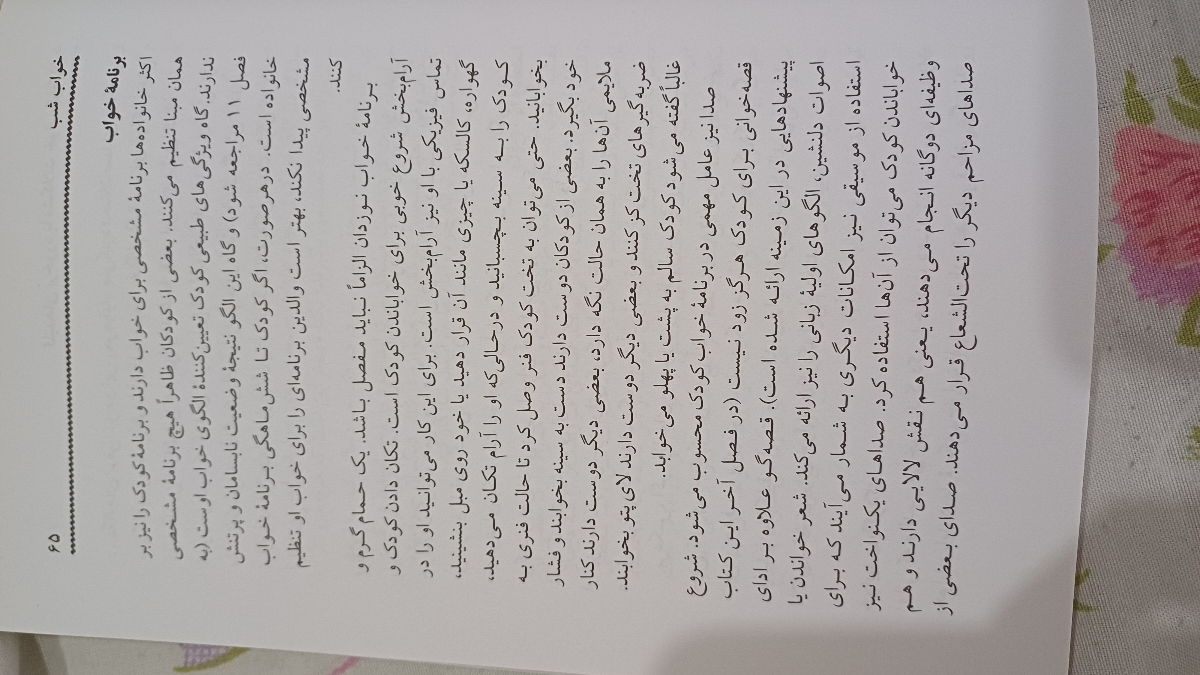 خواب شب
۶۵
برنامهٔ خواب
اکثر خانواده‌ها برنامهٔ مشخصی برای خواب دارند و برنامهٔ کودک را نیز بر
همان مبنا تنظیم می‌کنند. بعضی از کودکان ظاهراً هیچ برنامهٔ مشخصی
ندارند. گاه ویژگی‌های طبیعی کودک تعیین‌کنندهٔ الگوی خواب اوست (به
فصل ۱۱ مراجعه شود) و گاه این الگو نتیجهٔ وضعیت نابسامان و پرتنش
خانواده است. درهرصورت، اگر کودک تا شش‌ماهگی برنامهٔ خواب
مشخصی پیدا نکند، بهتر است والدین برنامه‌ای را برای خواب او تنظیم
کنند.
برنامهٔ خواب نوزدان الزاماً نباید مفصل باشد. یک حمام گرم و
آرام‌بخش شروع خوبی برای خواباندن کودک است. تکان دادن کودک و
تماس فیزیکی با او نیز آرام‌بخش است. برای این کار می‌توانید او را در
گهواره، کالسکه یا چیزی مانند آن قرار دهید یا خود روی مبل بنشینید،
کودک را به سینه بچسبانید و درحالی‌که او را آرام تکان می‌دهید،
بخوابانید. حتی می‌توان به تخت کودک فنر وصل کرد تا حالت فنری به
خود بگیرد. بعضی از کودکان دوست دارند دست به سینه بخوابند و فشار
ملایمی آن‌ها را به همان حالت نگه دارد، بعضی دیگر دوست دارند کنار
ضربه‌گیرهای تخت کز کنند و بعضی دیگر دوست دارند لای پتو بخوابند.
غالباً گفته می‌شود کودک سالم به پشت یا پهلو می‌خوابد.
صدا نیز عامل مهمی در برنامهٔ خواب کودک محسوب می‌شود. شروع
قصه‌خوانی برای کودک هرگز زود نیست (در فصل آخر این کتاب
پیشنهادهایی در این زمینه ارائه شده است). قصه‌گو علاوه بر ادای
اصوات دلنشین، الگوهای اولیهٔ زبانی را نیز ارائه می‌کند. شعر خواندن یا
استفاده از موسیقی نیز امکانات دیگری به شمار می‌آیند که برای
خواباندن کودک می‌توان از آن‌ها استفاده کرد. صداهای یکنواخت نیز
وظیفه‌ای دوگانه انجام می‌دهند، یعنی هم نقش لالایی دارند و هم
صداهای مزاحم دیگر را تحت‌الشعاع قرار می‌دهند. صدای بعضی از